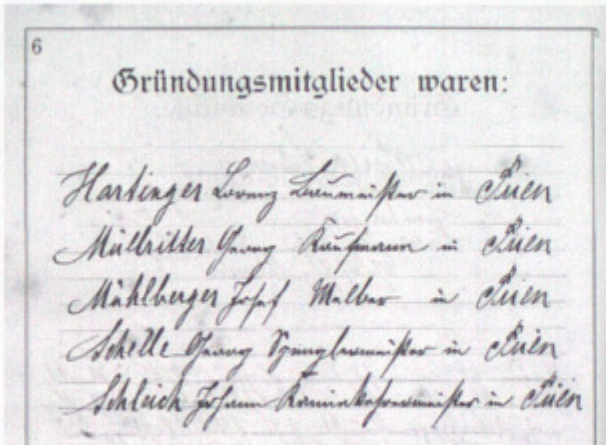 6
Gründungsmitglieder waren:
Hartinger Lorenz Baumeister in Prien
Müllritter Georg Kaufmann in Prien
Mühlberger Josef Melber in Prien
Schelle Georg Spenglermeister in Prien
Schleich Johann Kaminkehrermeister in Prien